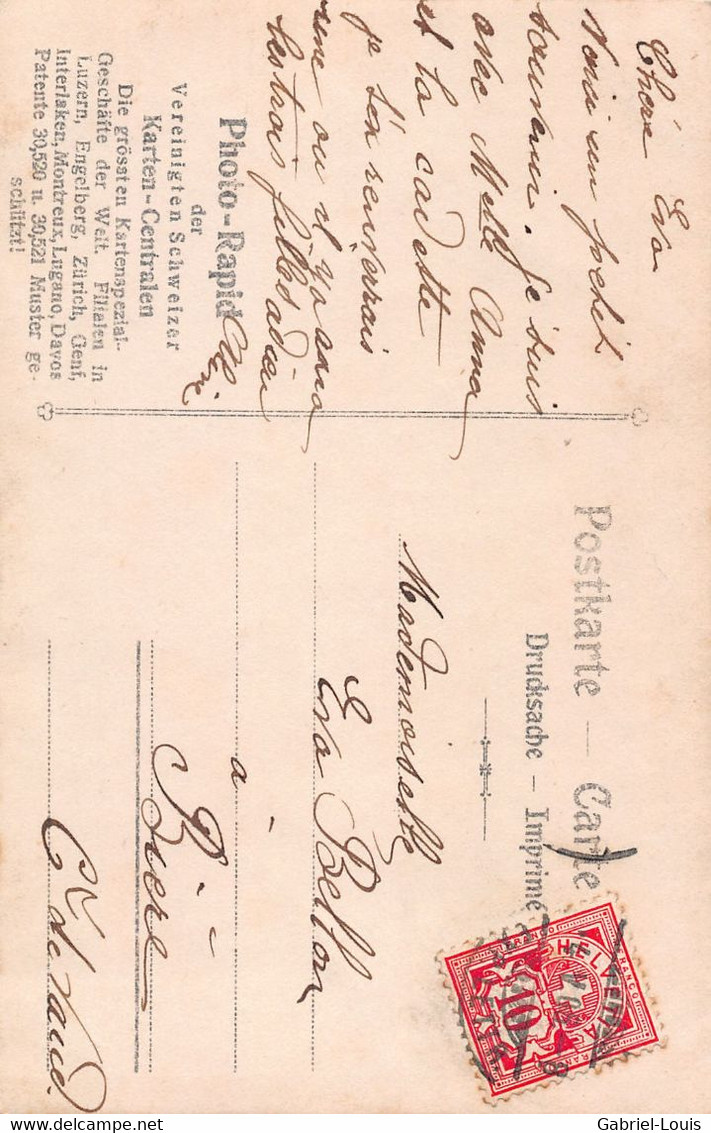 Chère Eva
Voici un petit
souvenir. Je suis
avec Melle Anna
et la cadette
je t'en renverrais
une ou il y aura
les trois filles adieu
Photo-Rapid
der
Vereinigten Schweizer
Karten-Centralen
Die grössten Kartenspezial-
Geschäfte der Welt. Filialen in
Luzern, Engelberg, Zürich, Genf,
Interlaken, Montreux, Lugano, Davos
Patente 30,520 u. 30,521 Muster ge-
schützt!
Postkarte — Carte
Drucksache — Imprimé
FRANCO
HELVETIA
FRANCO
10
FRANCO
Mademoiselle
Eva Bellon
à
Bière
Ct de Vaud.
Gabriel-Louis